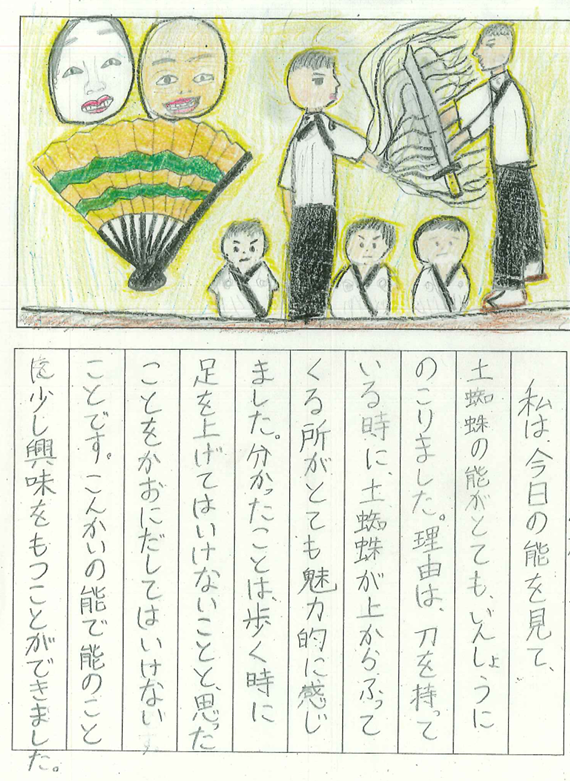 私は、今日の能を見て、
土蜘蛛の能がとても、いんしょうに
のこりました。理由は、刀を持って
いる時に、土蜘蛛が上からふって
くる所がとても魅力的に感じ
ました。分かったことは、歩く時に
足を上げてはいけないことと、思った
ことをかおにだしてはいけない
ことです。こんかいの能で能のこと
に少し興味をもつことができました。